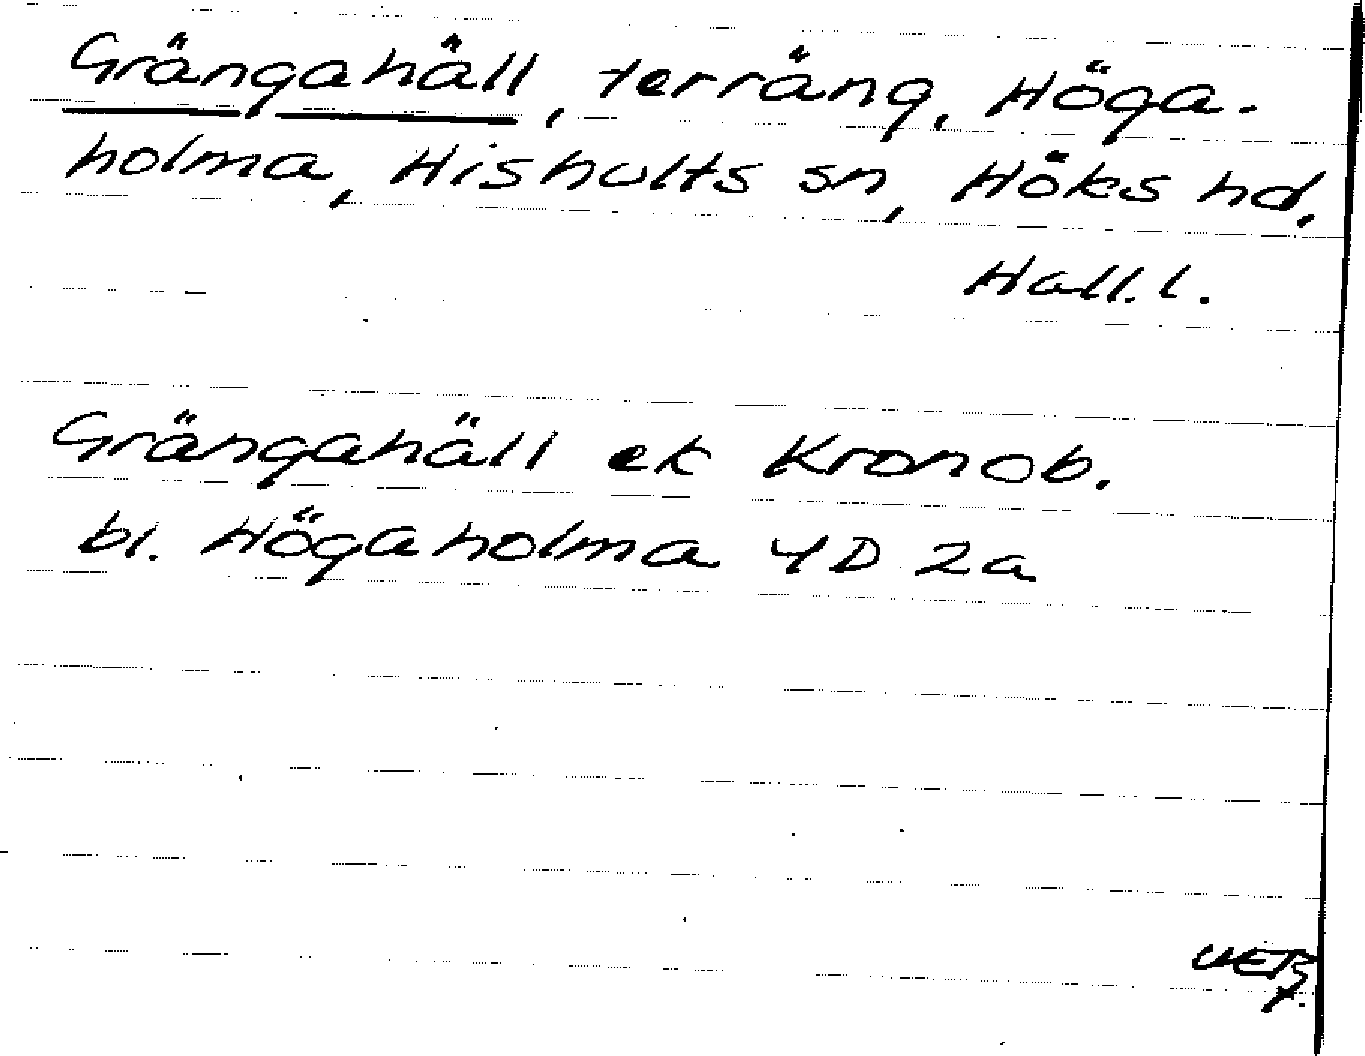 Grängahäll, terräng, Höga-
holma, Hishults sn, Höks hd,
Hall. l.
Grängahäll ek Kronob.
bl. Högaholma 4D 2a